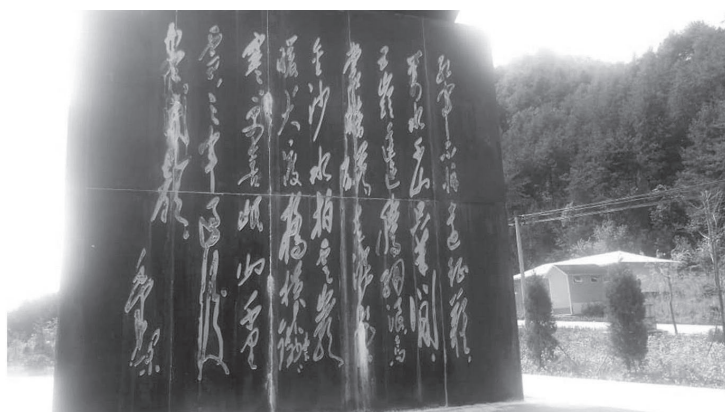 紅軍不怕遠征難
萬水千山只等閑
五嶺逶迤騰細浪烏
蒙磅礴走泥丸
金沙水拍雲崖
暖大渡橋橫鐵索
寒更喜岷山千里
雪三軍過後
盡開顏
毛澤東